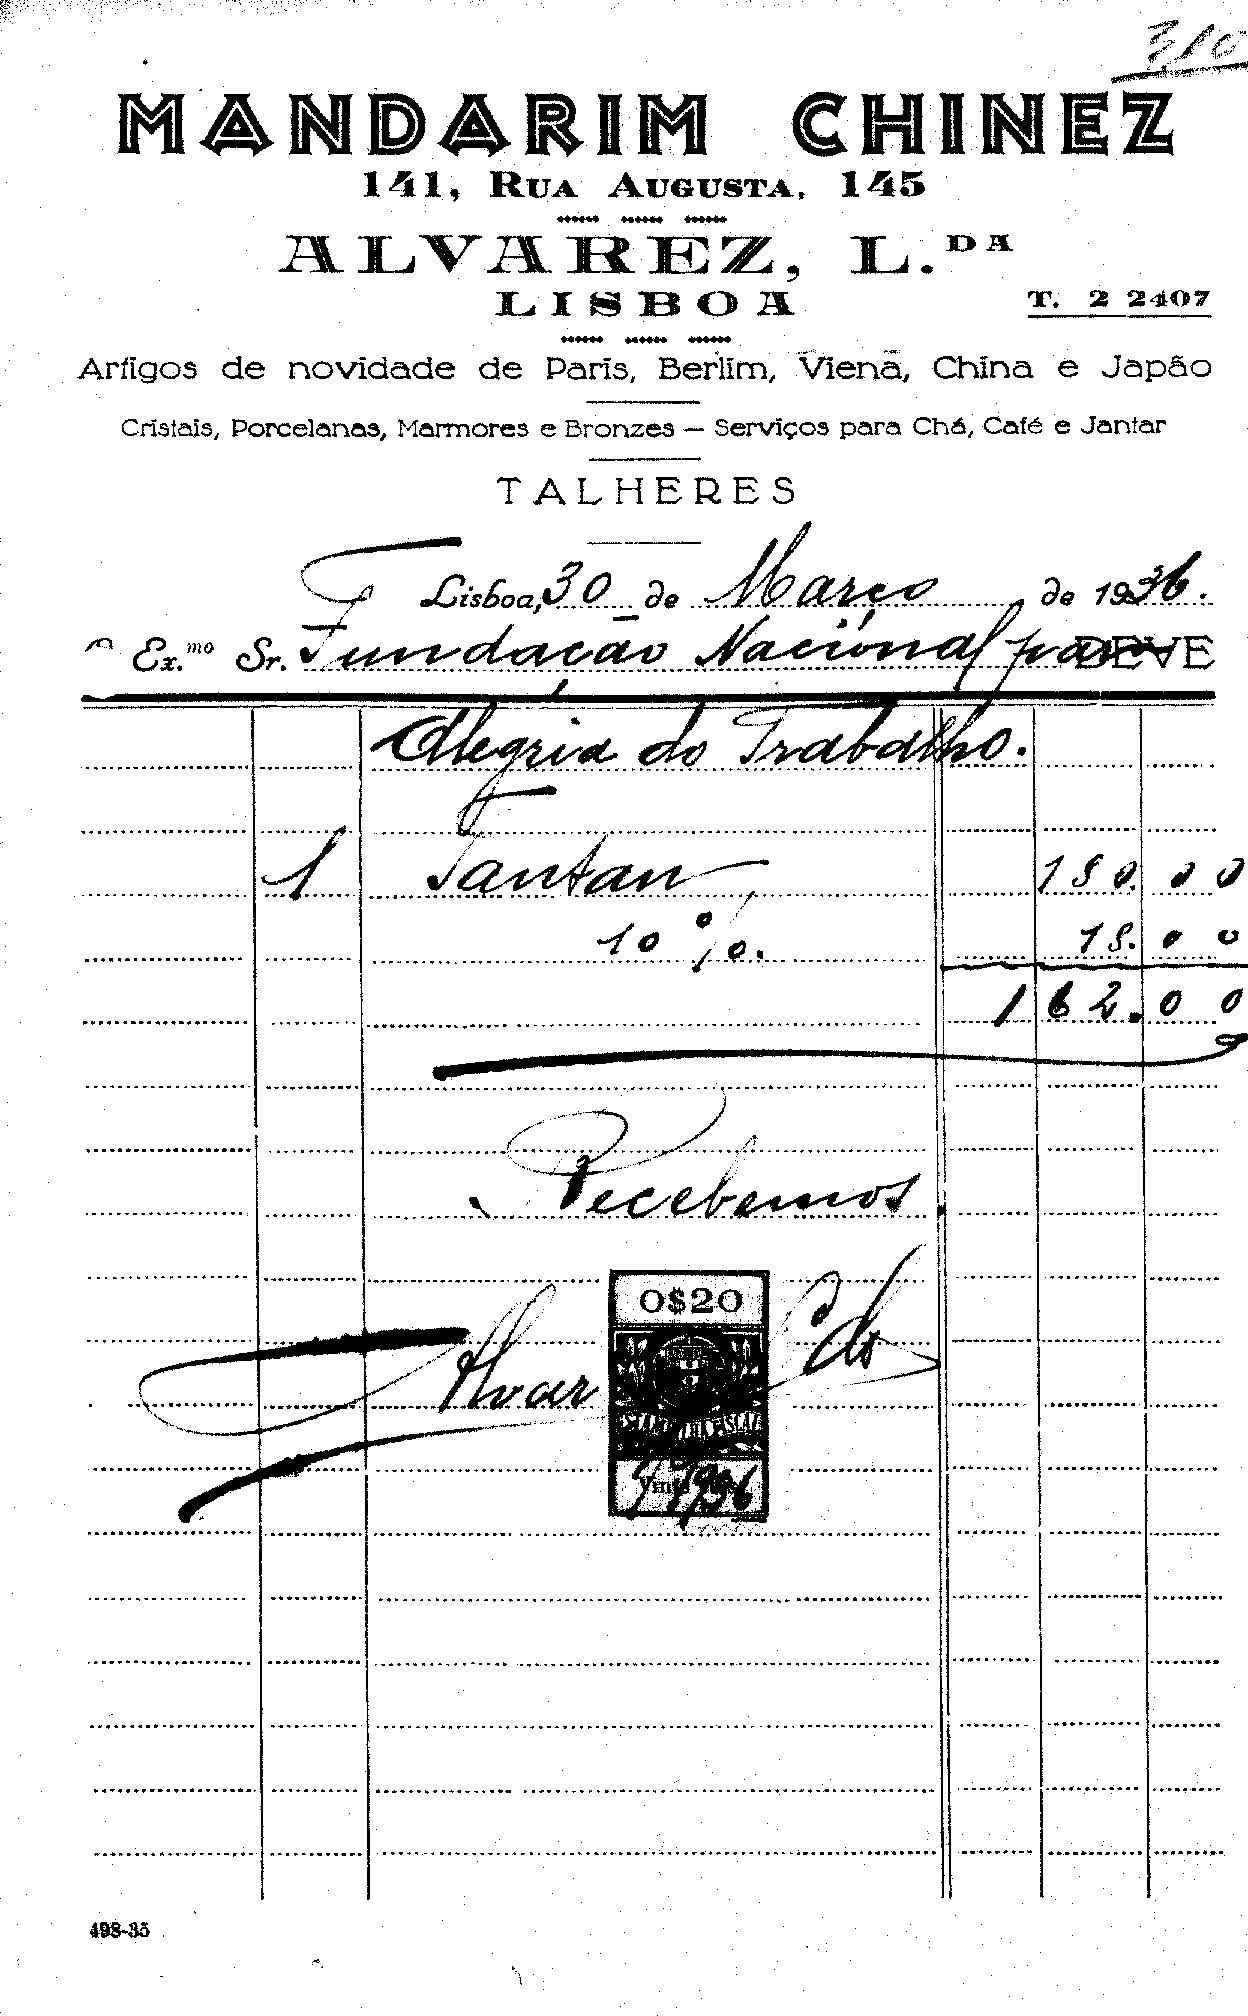 310
MANDARIM CHINEZ
141, RUA AUGUSTA, 145
ALVAREZ, L.DA
LISBOA
T. 2 2407
Artigos de novidade de Paris, Berlim, Viena, China e Japão
Cristais, Porcelanas, Marmores e Bronzes — Serviços para Chá, Café e Jantar
TALHERES
Lisboa, 30 de Março de 1936.
Ex.mo Sr. Fundação Nacional para DEVE
Alegria do Trabalho.
1 Tantan 180.00
10 %. 18.00
162.00
Recebemos
0$20
Alvar
1936
498-35